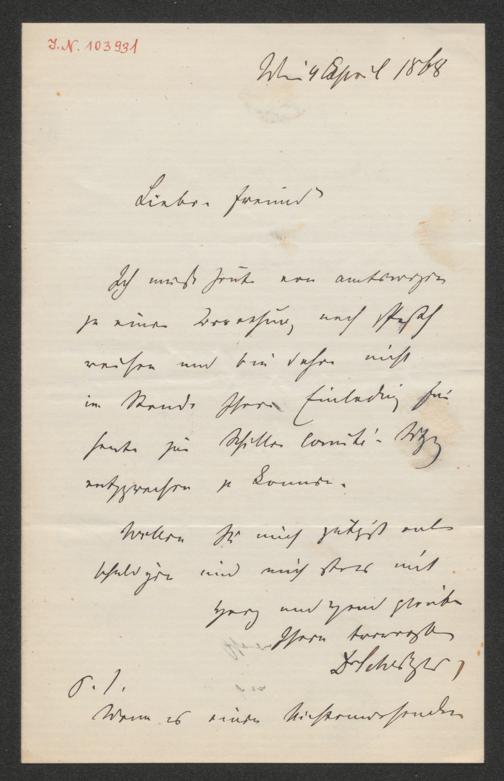 J.N. 103931
Wien 4 April 1868
Lieber Freund
Ich muß heute von amtswegen
zu einer Berathung nach Pesth
reisen und bin daher nicht
im Stande Ihrer Einladung für
heute zur Schiller Comité-Sitzg
entsprechen zu können.
Wollen Sie mich gütigst ent-
schuldigen und mich stets mit
Herz und Hand glauben
Ihren
Dr Scherzer
Wenn es einem Nichtanwesenden